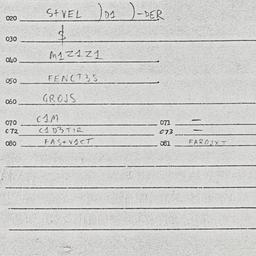 020 S+VEL )D1 )-DER
030 $
040 M1Z1Z1
050 FENCT3S
060 GROJS
070 C1M 071 —
072 C1D3T1R 073 —
080 FAS+V1CT 081 FAROJXT